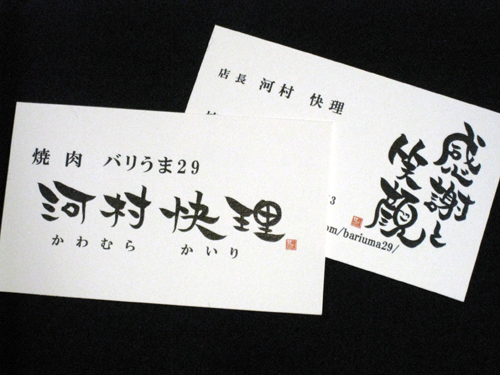 焼肉 バリうま29
河村快理
かわむら かいり
店長 河村 快理
感謝と
笑顔
3
om/bariuma29/